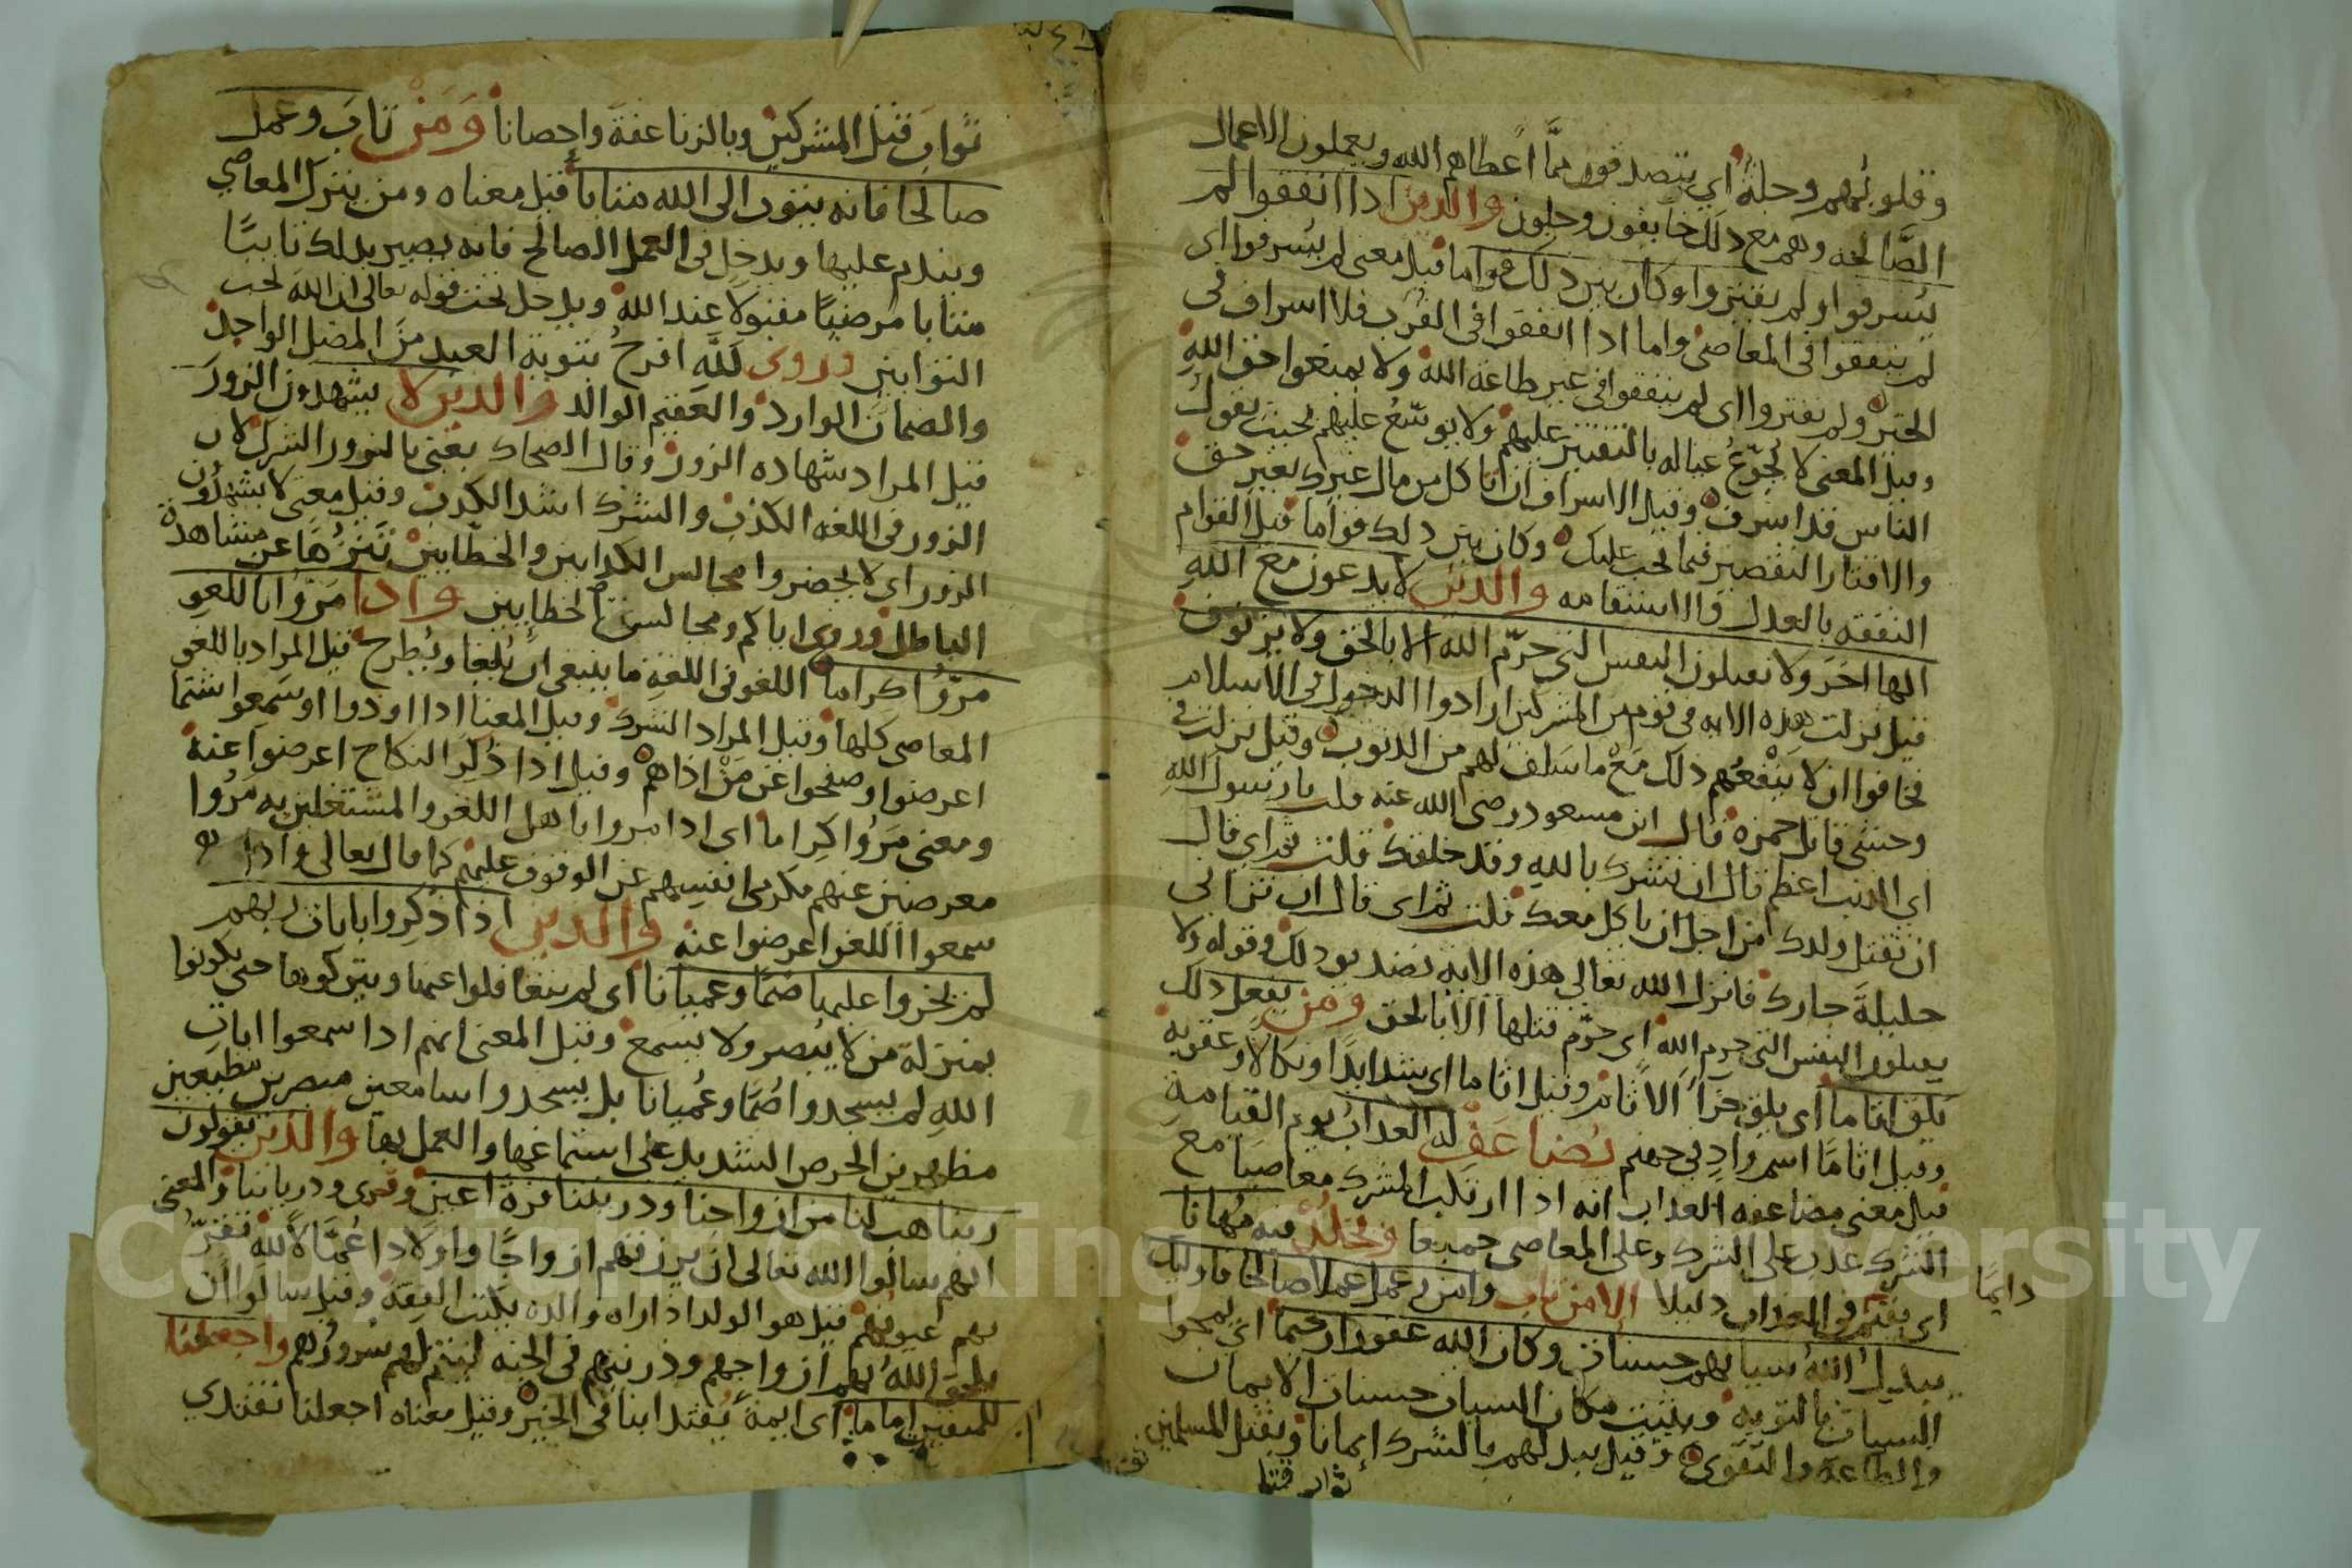 وقلوبهم وجلة أي يتصدقون مما أعطاهم الله ويعملون الاعمال
الصالحة وهم مع ذلك خايفون وجلون والذين اذا انفقوا لم
يسرفوا ولم يقتروا وكان بين ذلك قواما قيل معنى لم يسرفوا اي
لم ينفقوا في المعاصي واما اذا انفقوا في القرب فلا اسراف في
الخير ولم يقتروا اى لم ينفقوا في غير طاعة الله ولا يمنعوا حق الله
وقيل المعنى لا يجوع عياله بالتقتير عليهم ولا يوسع عليهم بحيث يقول
الناس قد اسرف وقيل الاسراف ان تاكل من مال غيرك بغير حق
والاقتار التقصير فيما يجب عليك وكان بين ذلك قواما قيل القوام
النفقة بالعدل والاستقامه والذين لا يدعون مع الله
الها اخر ولا يقتلون النفس التي حرم الله الا بالحق ولا يزنون
قيل نزلت هذه الايه في قوم من المشركين ارادوا الدخول في الاسلام
فخافوا ان لا ينفعهم ذلك مع ما سلف لهم من الذنوب وقيل نزلت في
وحشي قاتل حمزه قال ابن مسعود رضي الله عنه قلت يا رسول الله
اي الذنب اعظم قال ان تشرك بالله وقد خلقك قلت ثم اي قال
ان تقتل ولدك من اجل ان ياكل معك قلت ثم اى قال ان تزاني
حليلة جارك فانزل الله تعالى هذه الايه تصديق ذلك وقوله ولا
يقتلون النفس التي حرم الله اي حرم قتلها الا بالحق ومن يفعل ذلك
يلق اثاما أى يلق جزا الاثام وقيل اثاما اى شدايدا ونكالا وعقوبة
وقيل اثاما اسم واد في جهنم يضاعف له العذاب يوم القيامة
قيل معنى مضاعفه العذاب انه اذا ارتكب المشرك معاصيا مع
الشرك عذب على الشرك وعلى المعاصى جميعا ويخلد فيه مهانا
اي يقيم في العذاب ذليلا الا من تاب وامن وعمل عملا صالحا فاوليك
دايما
يبدل الله سياتهم حسنات وكان الله غفورا رحيما اى يمحوا
السيات بالتوبه ويثبت مكان السيات حسنات الايمان
والطاعة والتقوى وقيل يبدلهم بالشرك إيمانا وبقتل المسلمين
ثواب قتل
ثواب قتل المشركين وبالزنا عفة واحصانا ومن تاب وعمل
صالحا فانه يتوب الى الله متابا قيل معناه ومن يترك المعاصي
ويندم عليها ويدخل في العمل الصالح فانه يصير بذلك تايبا
متابا مرضيا مقبولا عند الله ويدخل تحت قوله تعالى ان الله يحب
التوابين وروى لله افرح بتوبة العبد من المضل الواجد
والضمان الوارد والعقيم الوالد والذين لا يشهدون الزور
قيل المراد شهاده الزور وقال الضحاك يعني بالزور الشرك لان
الزور في اللغه الكذب والشرك اشد الكذب وقيل معنى لا يشهدون
الزور اى لا يحضروا مجالس الكذابين والخطابين تنزها عن مشاهدة
الباطل وروى اياكم ومجالس الخطايين واذا مروا باللغو
مروا كراما اللغو في اللغة ما ينبغي ان يلغا ويطرح قيل المراد باللغو
المعاصى كلها وقيل المراد الشرك وقيل المعنا اذا اوذوا او سمعوا شتما
اعرضوا وصفحوا عن من اذاهم وقيل اذا ذكر النكاح اعرضوا عنه
ومعنى مروا كراما اى اذا مروا باهل اللغو والمشتغلين به مروا
معرضين عنهم مكرمي انفسهم عن الوقوف عليهم كما قال تعالى واذا
سمعوا اللغو اعرضوا عنه والذين اذا ذكروا بايات ربهم
لم يخروا عليها صما وعميانا أى لم يتغافلوا عنها ويتركوها حتى يكونوا
بمنزلة من لا يبصر ولا يسمع وقيل المعنى انهم اذا سمعوا ايات
الله لم يسجدوا صما وعميانا بل يسجدوا سامعين مبصرين مطيعين
مظهرين الحرص الشديد على استماعها والعمل بها والذين يقولون
ربنا هب لنا من ازواجنا وذريتنا قرة اعين وقرى وذرياتنا والمعنى
انهم سالوا الله تعالى ان يرزقهم ازواجا واولادا عمالا لله تقر
بهم عيونهم قيل هو الولد اذا راه والده يكتب الفقه وقيل سالوا ان
يلحق الله بهم ازواجهم وذريتهم في الجنه ليتم لهم سرورهم واجعلنا
للمتقين اماما أى ايمة يقتدا بنا في الخير وقيل معناه اجعلنا نقتدي